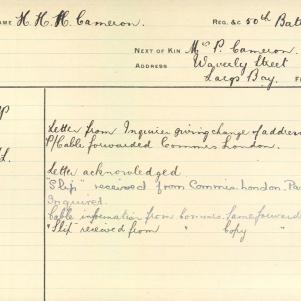 NAME H. H. H. Cameron. REG. &C 50th Batt
NEXT OF KIN Mrs P. Cameron.
ADDRESS Waverly Street
Largs Bay.
Letter from Inquirer giving change of address
P/Cable forwarded Commis London.
Letter acknowledged
"Slip" received from Commis. London. Pa
Inquired.
Cable information from Commis. Same forwarde
"Slip received from " Copy "